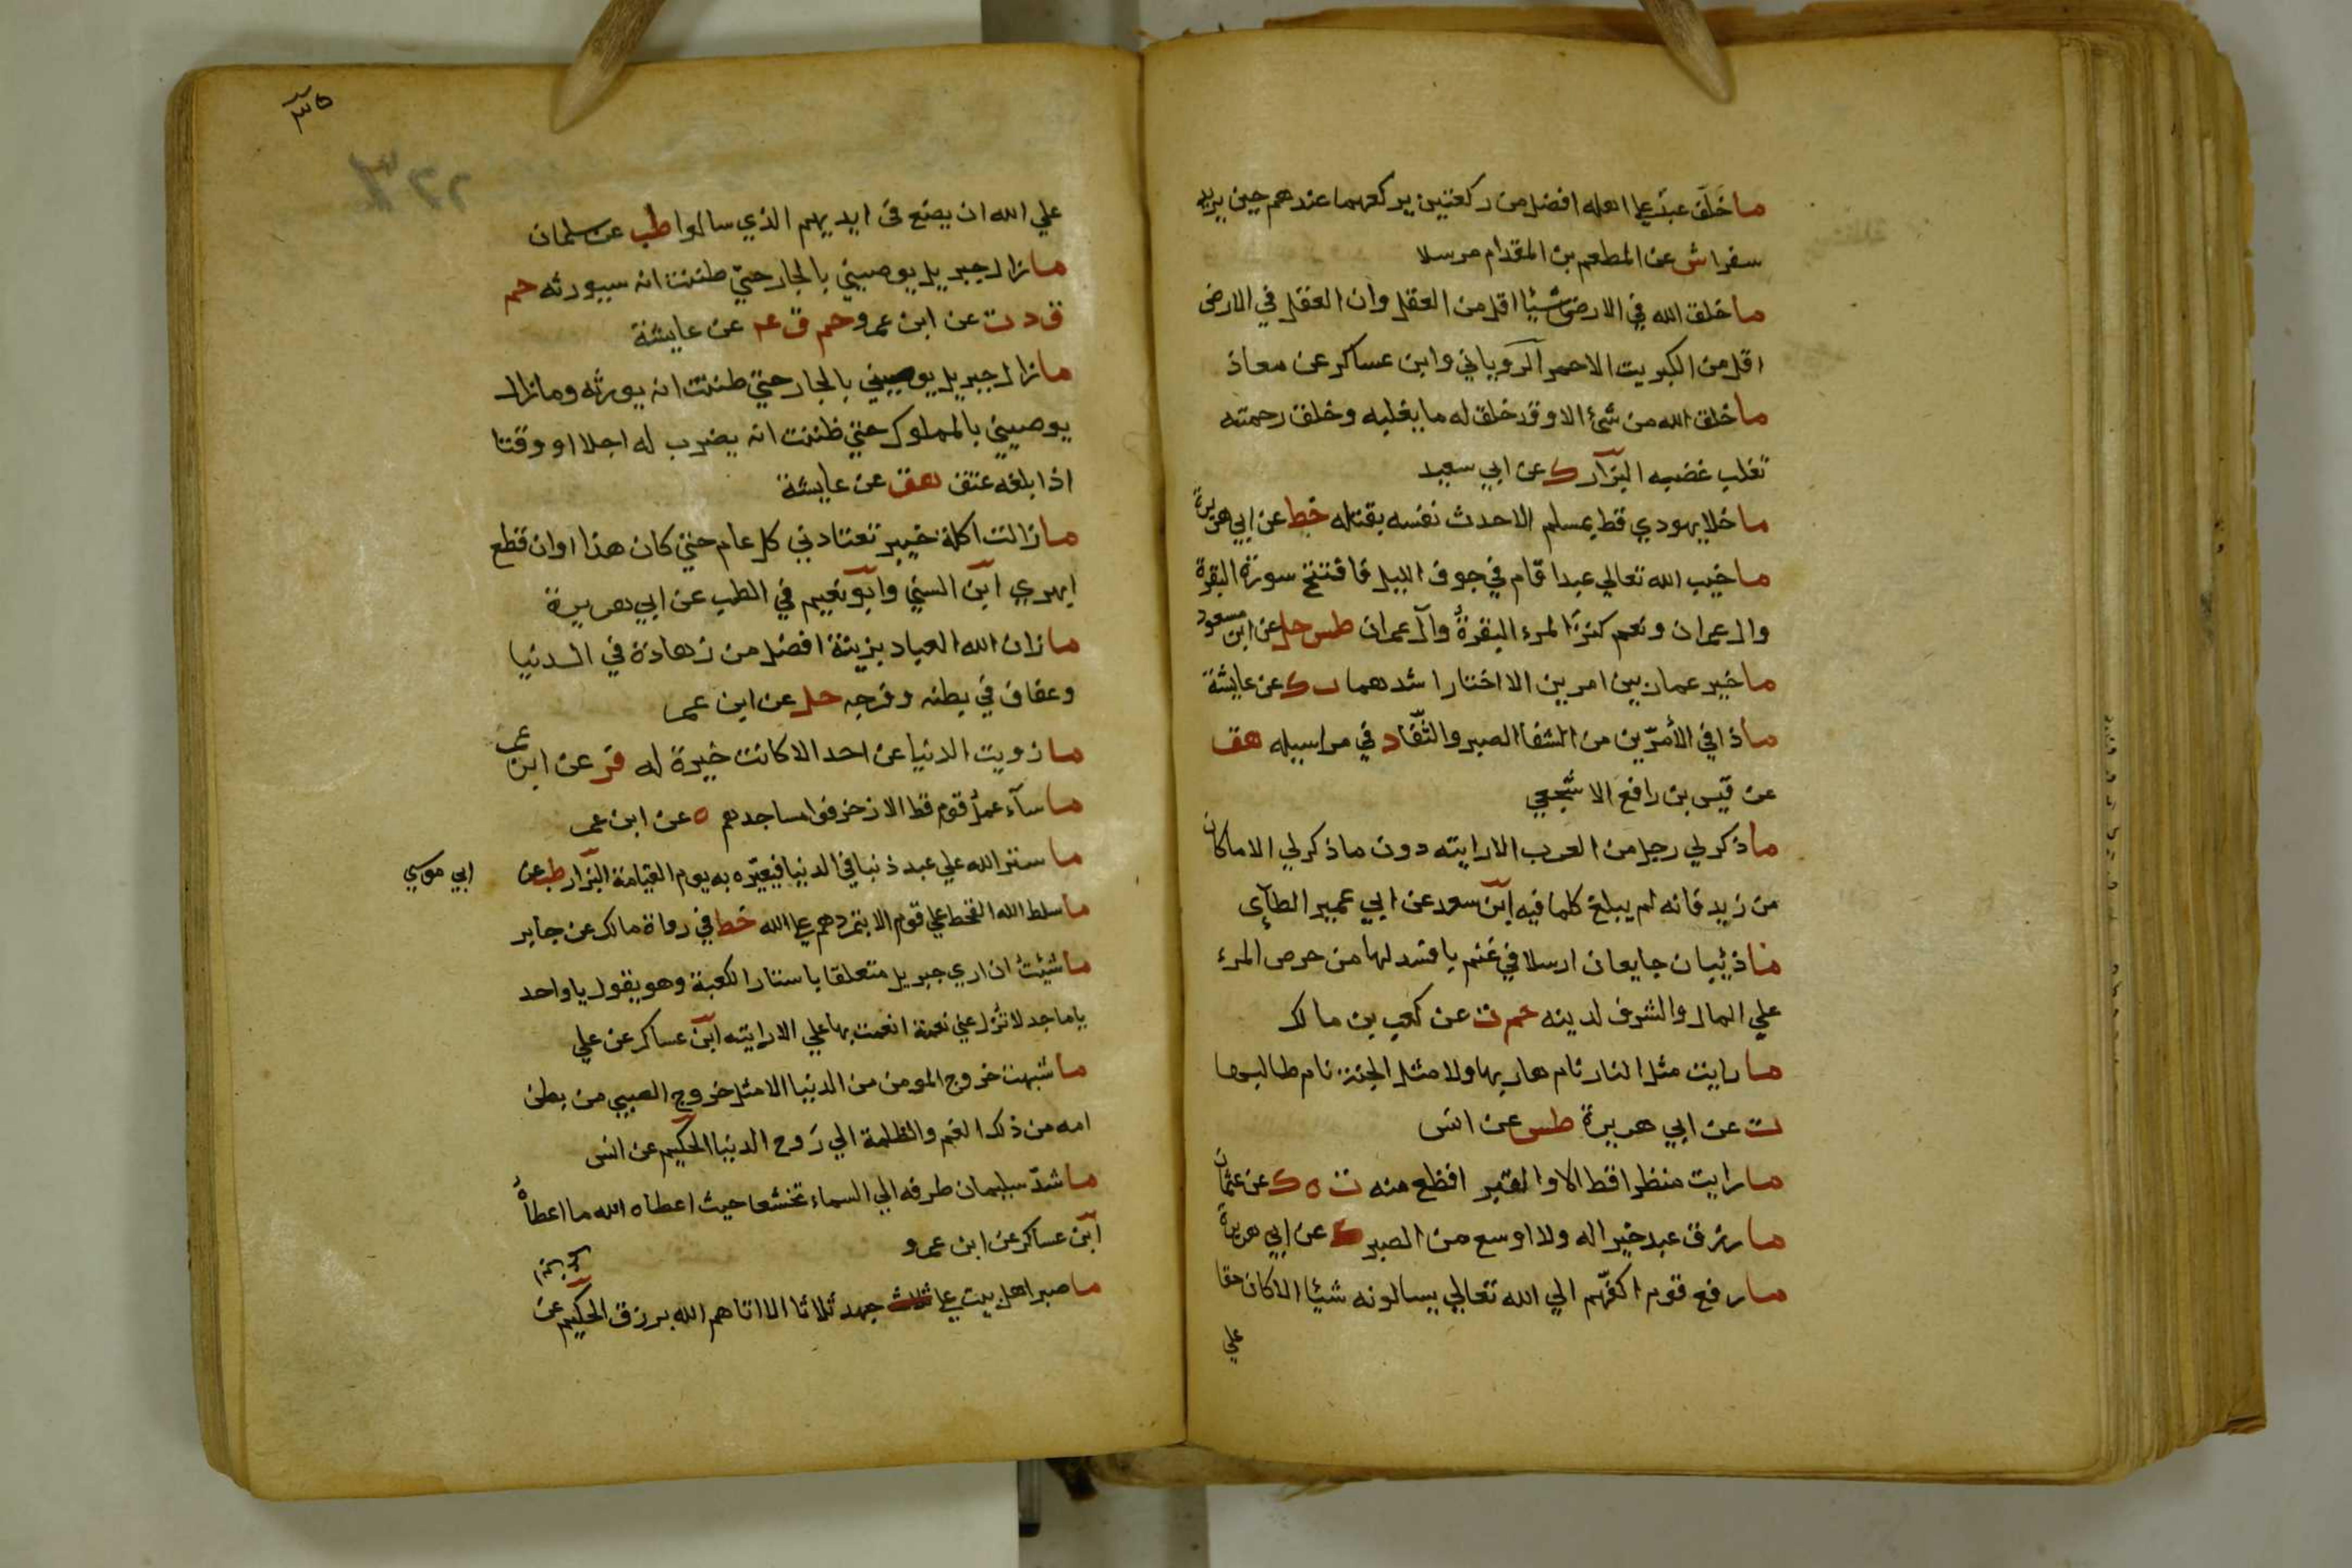 ما خَلَف عبدٌ علي اهله افضل من ركعتين يركعهما عندهم حين يريد
سفرا ش عن المطعم بن المقدام مرسلا
ما خلق الله في الارض شيئا اقل من العقل وان العقل في الارض
اقل من الكبريت الاحمر الروياني وابن عساكر عن معاذ
ما خلق الله من شئ الا وقد خلق له ما يغلبه وخلق رحمته
تغلب غضبه البزار ك عن ابي سعيد
ما خلا يهودي قط بمسلم الا حدث نفسه بقتله خط عن ابي هريرة
ما خيب الله تعالي عبدا قام في جوف الليل فافتتح سورة البقرة
وال عمران ونعم كنز المرء البقرةُ وآل عمران طس حل عن ابن مسعود
ما خير عمار بين امرين الا اختار اشدهما ت ك عن عايشة
ماذا في الأمرّين من الشفا الصبر والثّفاء د في مراسيله هق
عن قيس بن رافع الاشجعي
ما ذكر لي رجل من العرب الا رايته دون ما ذكر لي الا ما كان
من زيد فانه لم يبلغ كلما فيه ابن سعد عن ابي عمير الطآءى
ما ذئبان جايعان ارسلا في غنم بافسد لها من حرص المرء
علي المال والشرف لدينه حم ت عن كعب بن مالك
ما رايت مثل النار نام هاربها ولا مثل الجنة نام طالبها
ت عن ابي هريرة طس عن انس
ما رايت منظرا قط الا والقبر افظع منه ت ه ك عن عثمان
ما رزق عبد خيرا له ولا اوسع من الصبر ك عن ابي هريرة
ما رفع قوم اكفّهم الي الله تعالي يسالونه شيئا الا كان حقا
علي
٣٥
٢٢٦
علي الله ان يضع في ايديهم الذي سالوا طب عن سلمان
ما زال جبريل يوصيني بالجار حتيّ ظننت انه سيورثه حم
ق د ت عن ابن عمرو حم ق عه عن عايشة
ما زال جبريل يوصيني بالجار حتي ظننت انه يورثه وما زال
يوصيني بالمملوك حتي ظننت انه يضرب له اجلا او وقتا
اذا بلغه عتق هق عن عايشة
ما زالت اكلة خيبر تعتادني كل عام حتي كان هذا اوان قطع
ابهري ابن السني وابو نعيم في الطب عن ابي هريرة
ما زان الله العباد بزينة افضل من زهادة في الدنيا
وعفاف في بطنه وفرجه حل عن ابن عمر
ما زويت الدنيا عن احد الا كانت خيرة له فر عن ابن عمر
ما سآء عملُ قوم قط الا زخرفوا مساجدهم ه عن ابن عمر
ما ستر الله علي عبد ذنبا في الدنيا فيعيّره به يوم القيامة البزار طب عن ابي موسي
ما سلط الله القحط علي قوم الا بتمردهم علي الله خط في رواة مالك عن جابر
ما شئتُ ان اري جبريل متعلقا باستار الكعبة وهو يقول يا واحد
يا ماجد لا تُزل عني نعمة انعمت بها علي الا رايته ابن عساكر عن علي
ما شبهت خروج المومن من الدنيا الا مثل خروج الصبي من بطن
امه من ذلك الغم والظلمة الي رَوح الدنيا الحكيم عن انس
ما شدّ سليمان طرفه الي السماء تخشعا حيث اعطاه الله ما اعطاهُ
ابن عساكر عن ابن عمرو
ما صبر اهل بيت علي ثلاث جهد ثلاثا الا اتاهم الله برزق الحكيم عن